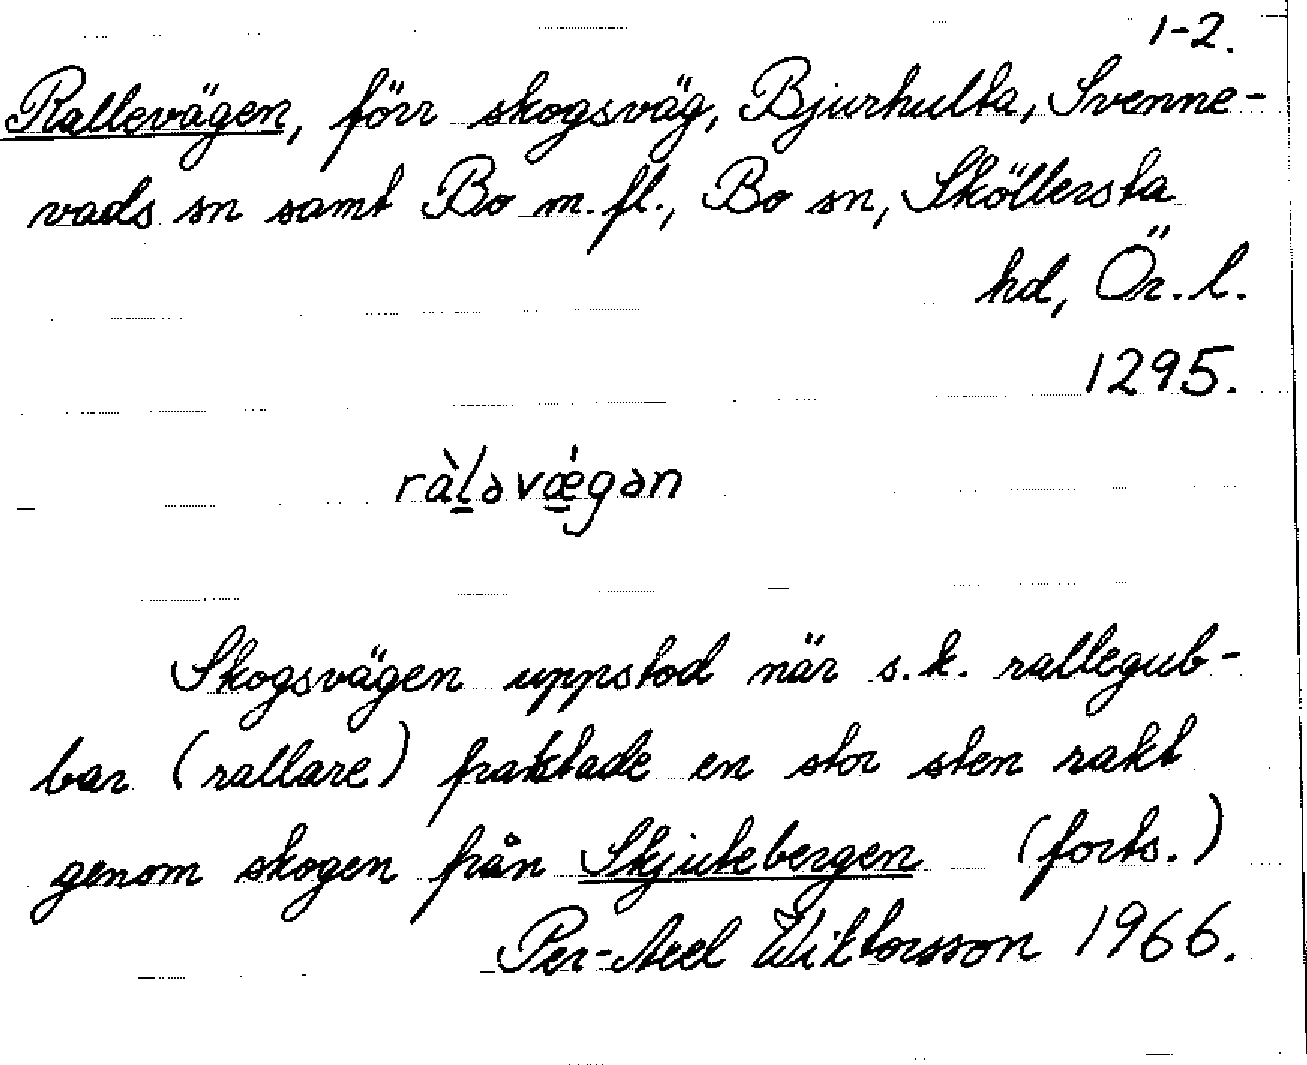 1-2.
Rallevägen, förr skogsväg, Bjurhulta, Svenne-
vads sn samt Bo m.fl., Bo sn, Sköllersta
hd, Ör. l.
1295.
ràləvǽgən
Skogsvägen uppstod när s.k. rallegub-
bar (rallare) fraktade en stor sten rakt
genom skogen från Skjutebergen (forts.)
Per-Axel Wiktorsson 1966.